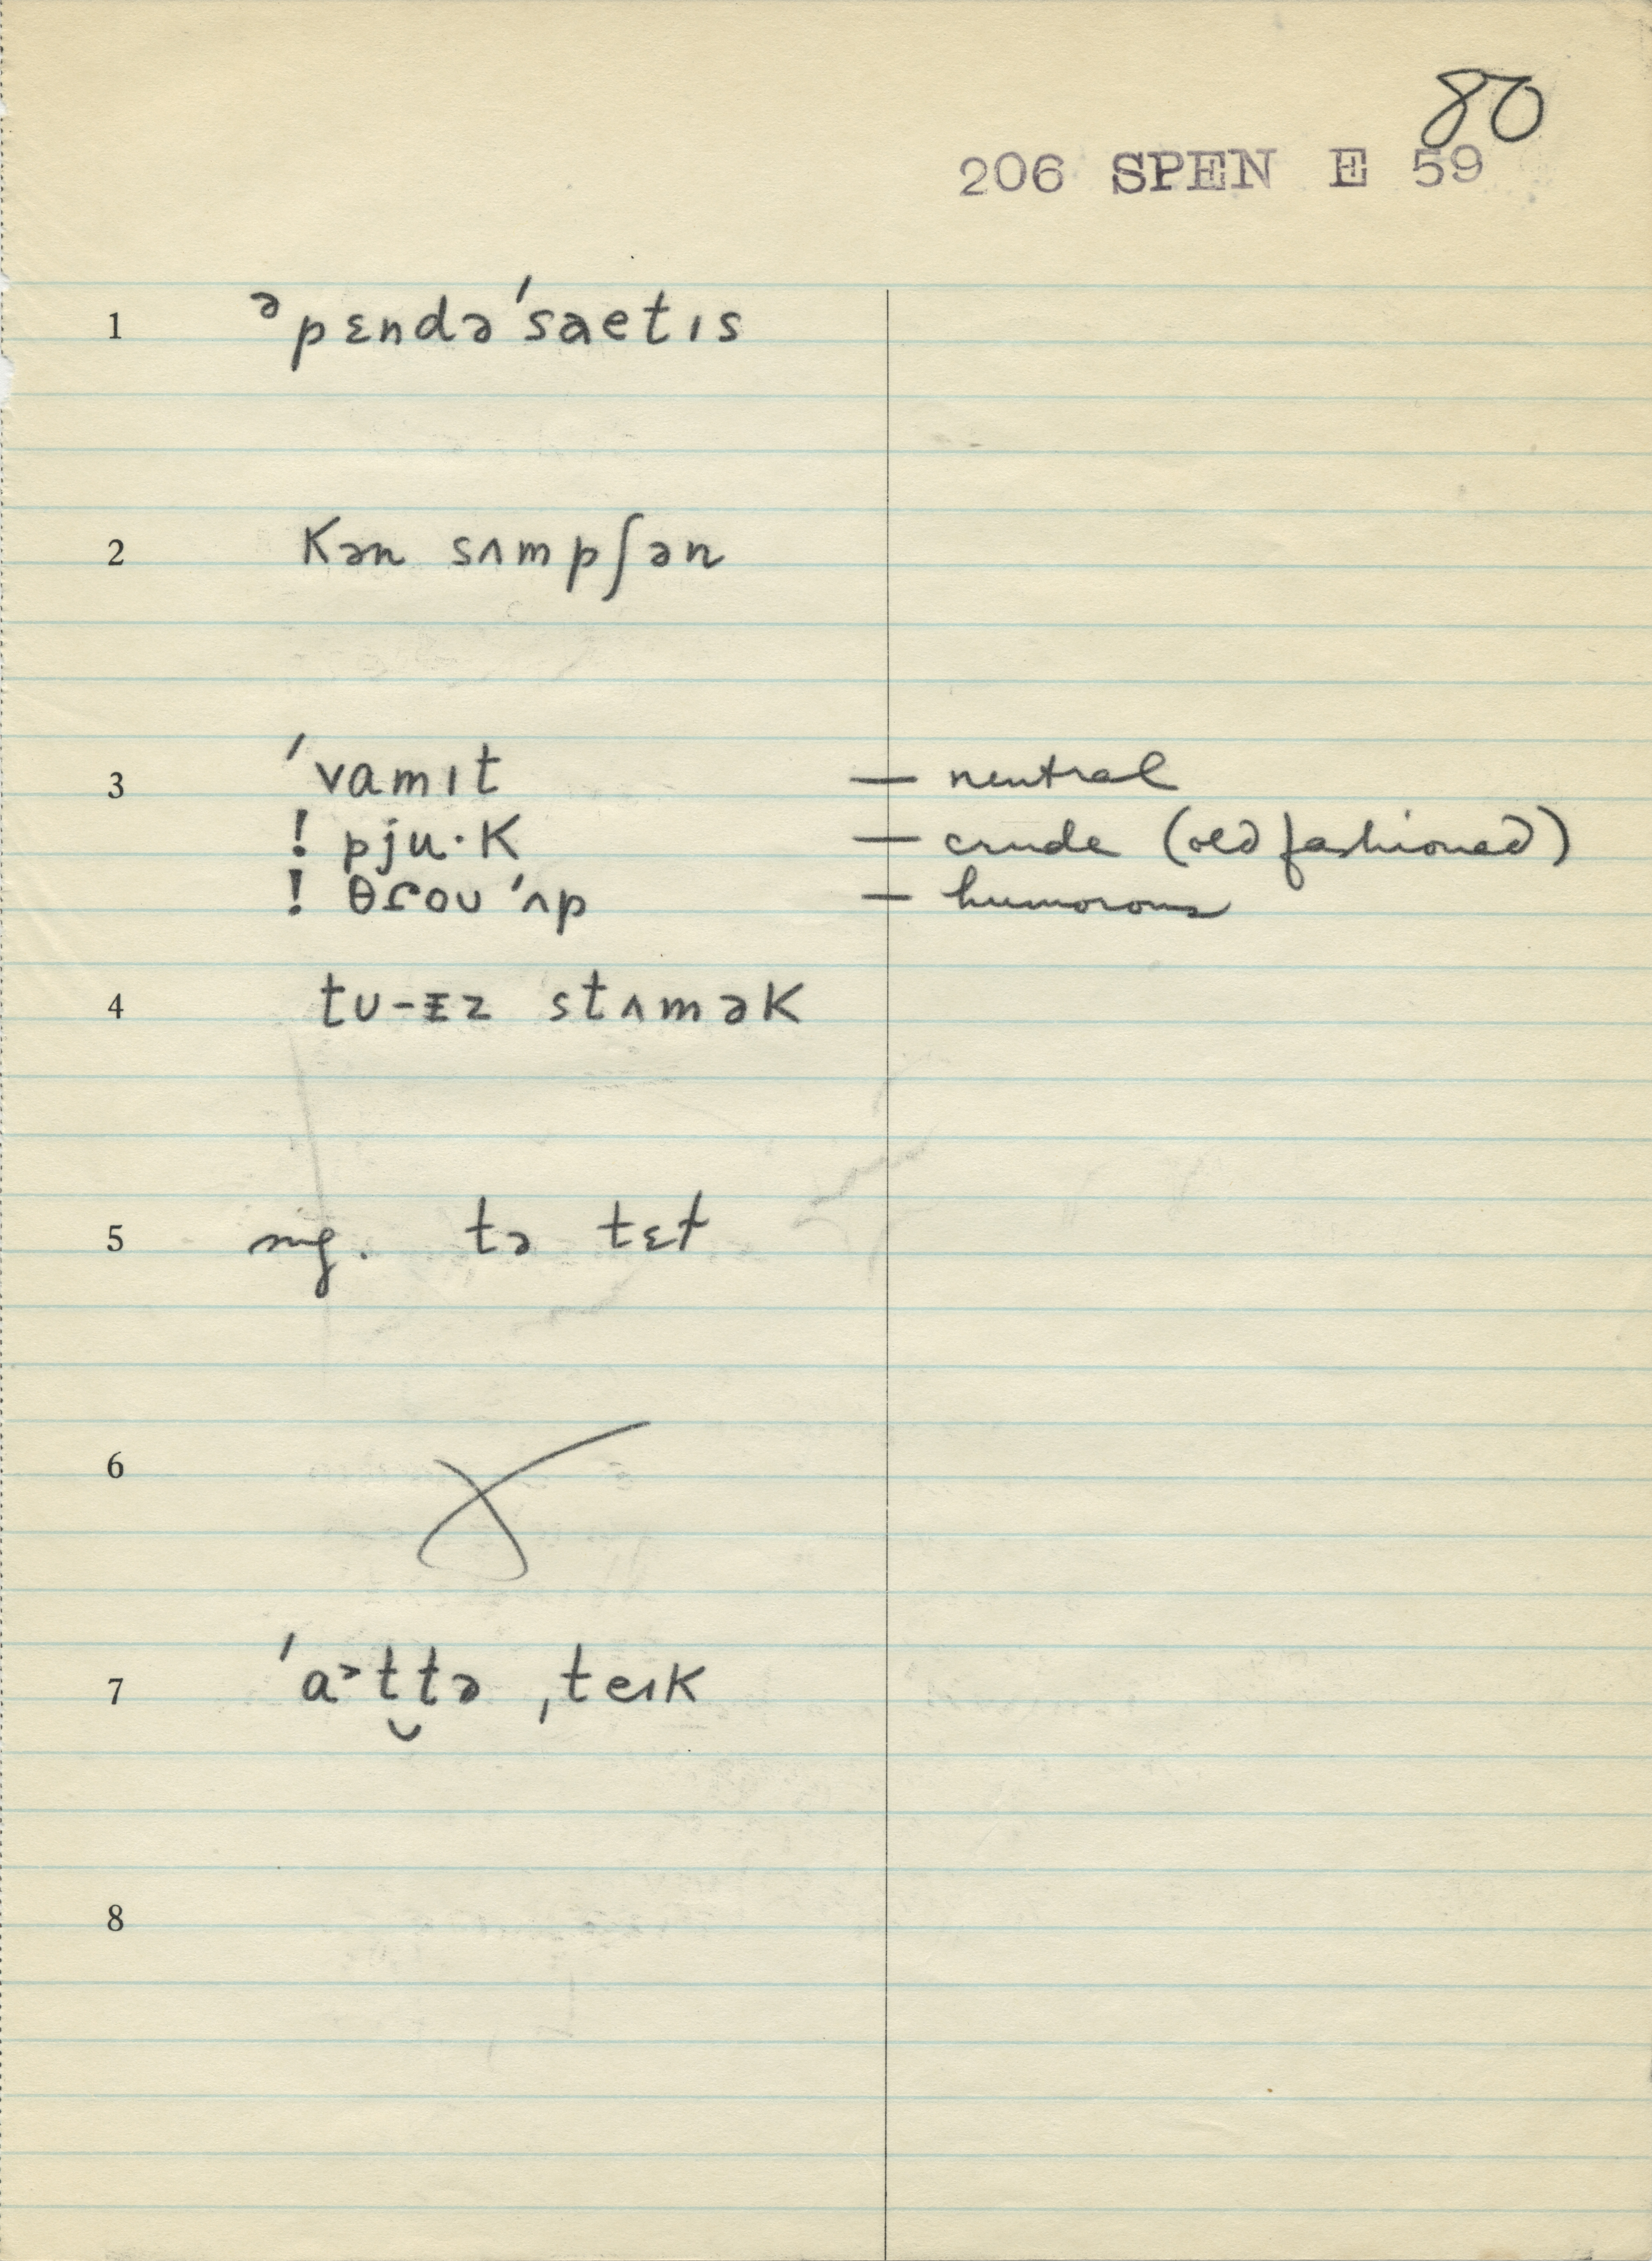 80
206 SPEN E 59
1 ᵊpɛndə'saetɪs
2 Kən sʌmpʃən
3 'vamɪt — neutral
! pju·K — crude (old fashioned)
! θɾoʊ 'ʌp — humorous
4 tʊ-ɪz stʌməK
5 ng. tə tɛt
6
7 'aᵊt̬tə ˌteɪK
8